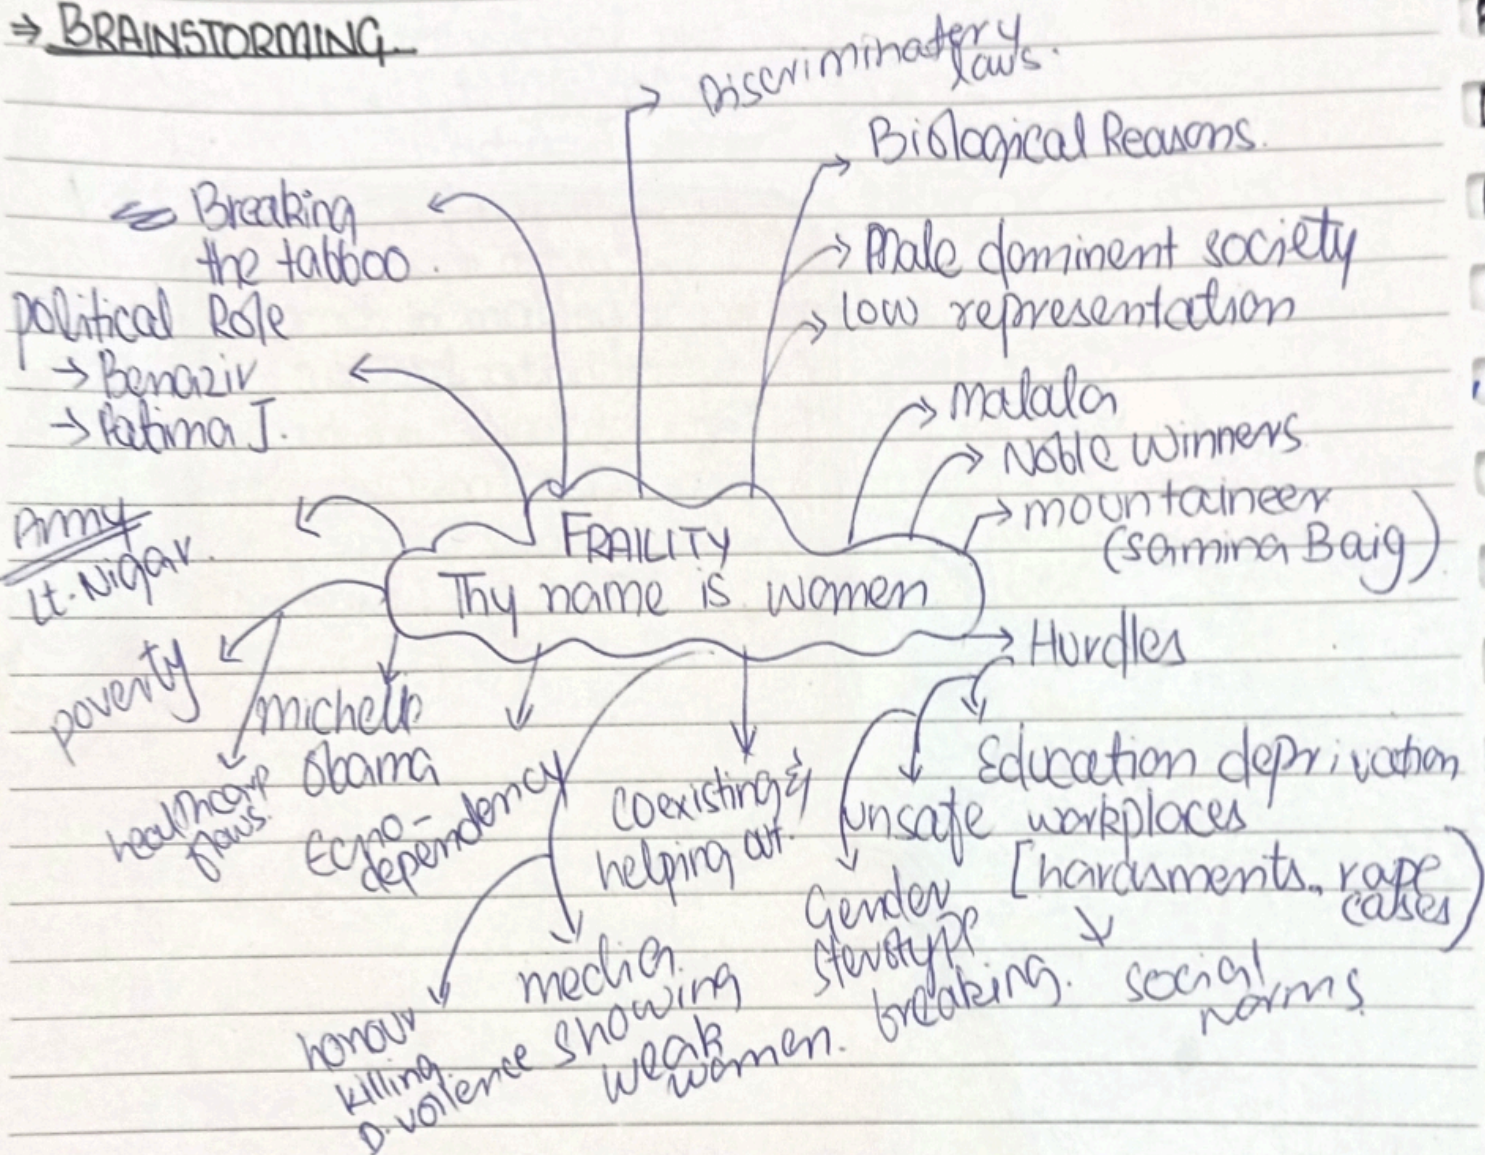 ⇒ BRAINSTORMING
Discriminatery
laws.
Biological Reasons.
Breaking
the tabboo.
Male dominent society
low representation
political Role
→ Benazir
→ Fatima J.
Malala
Noble Winners
mountaineer
(Samina Baig)
Army
Lt. Nigar.
FRAILITY
Thy name is women
Hurdles
poverty
michelle
Obama
healthcare
flaws.
Ecno-
dependency
Coexisting &
helping out.
Education deprivation
unsafe workplaces
[harasments, rape
cases)
Gender
sterotype
breaking.
social
norms.
media
showing
weak
women.
honour
killing.
D. voilence